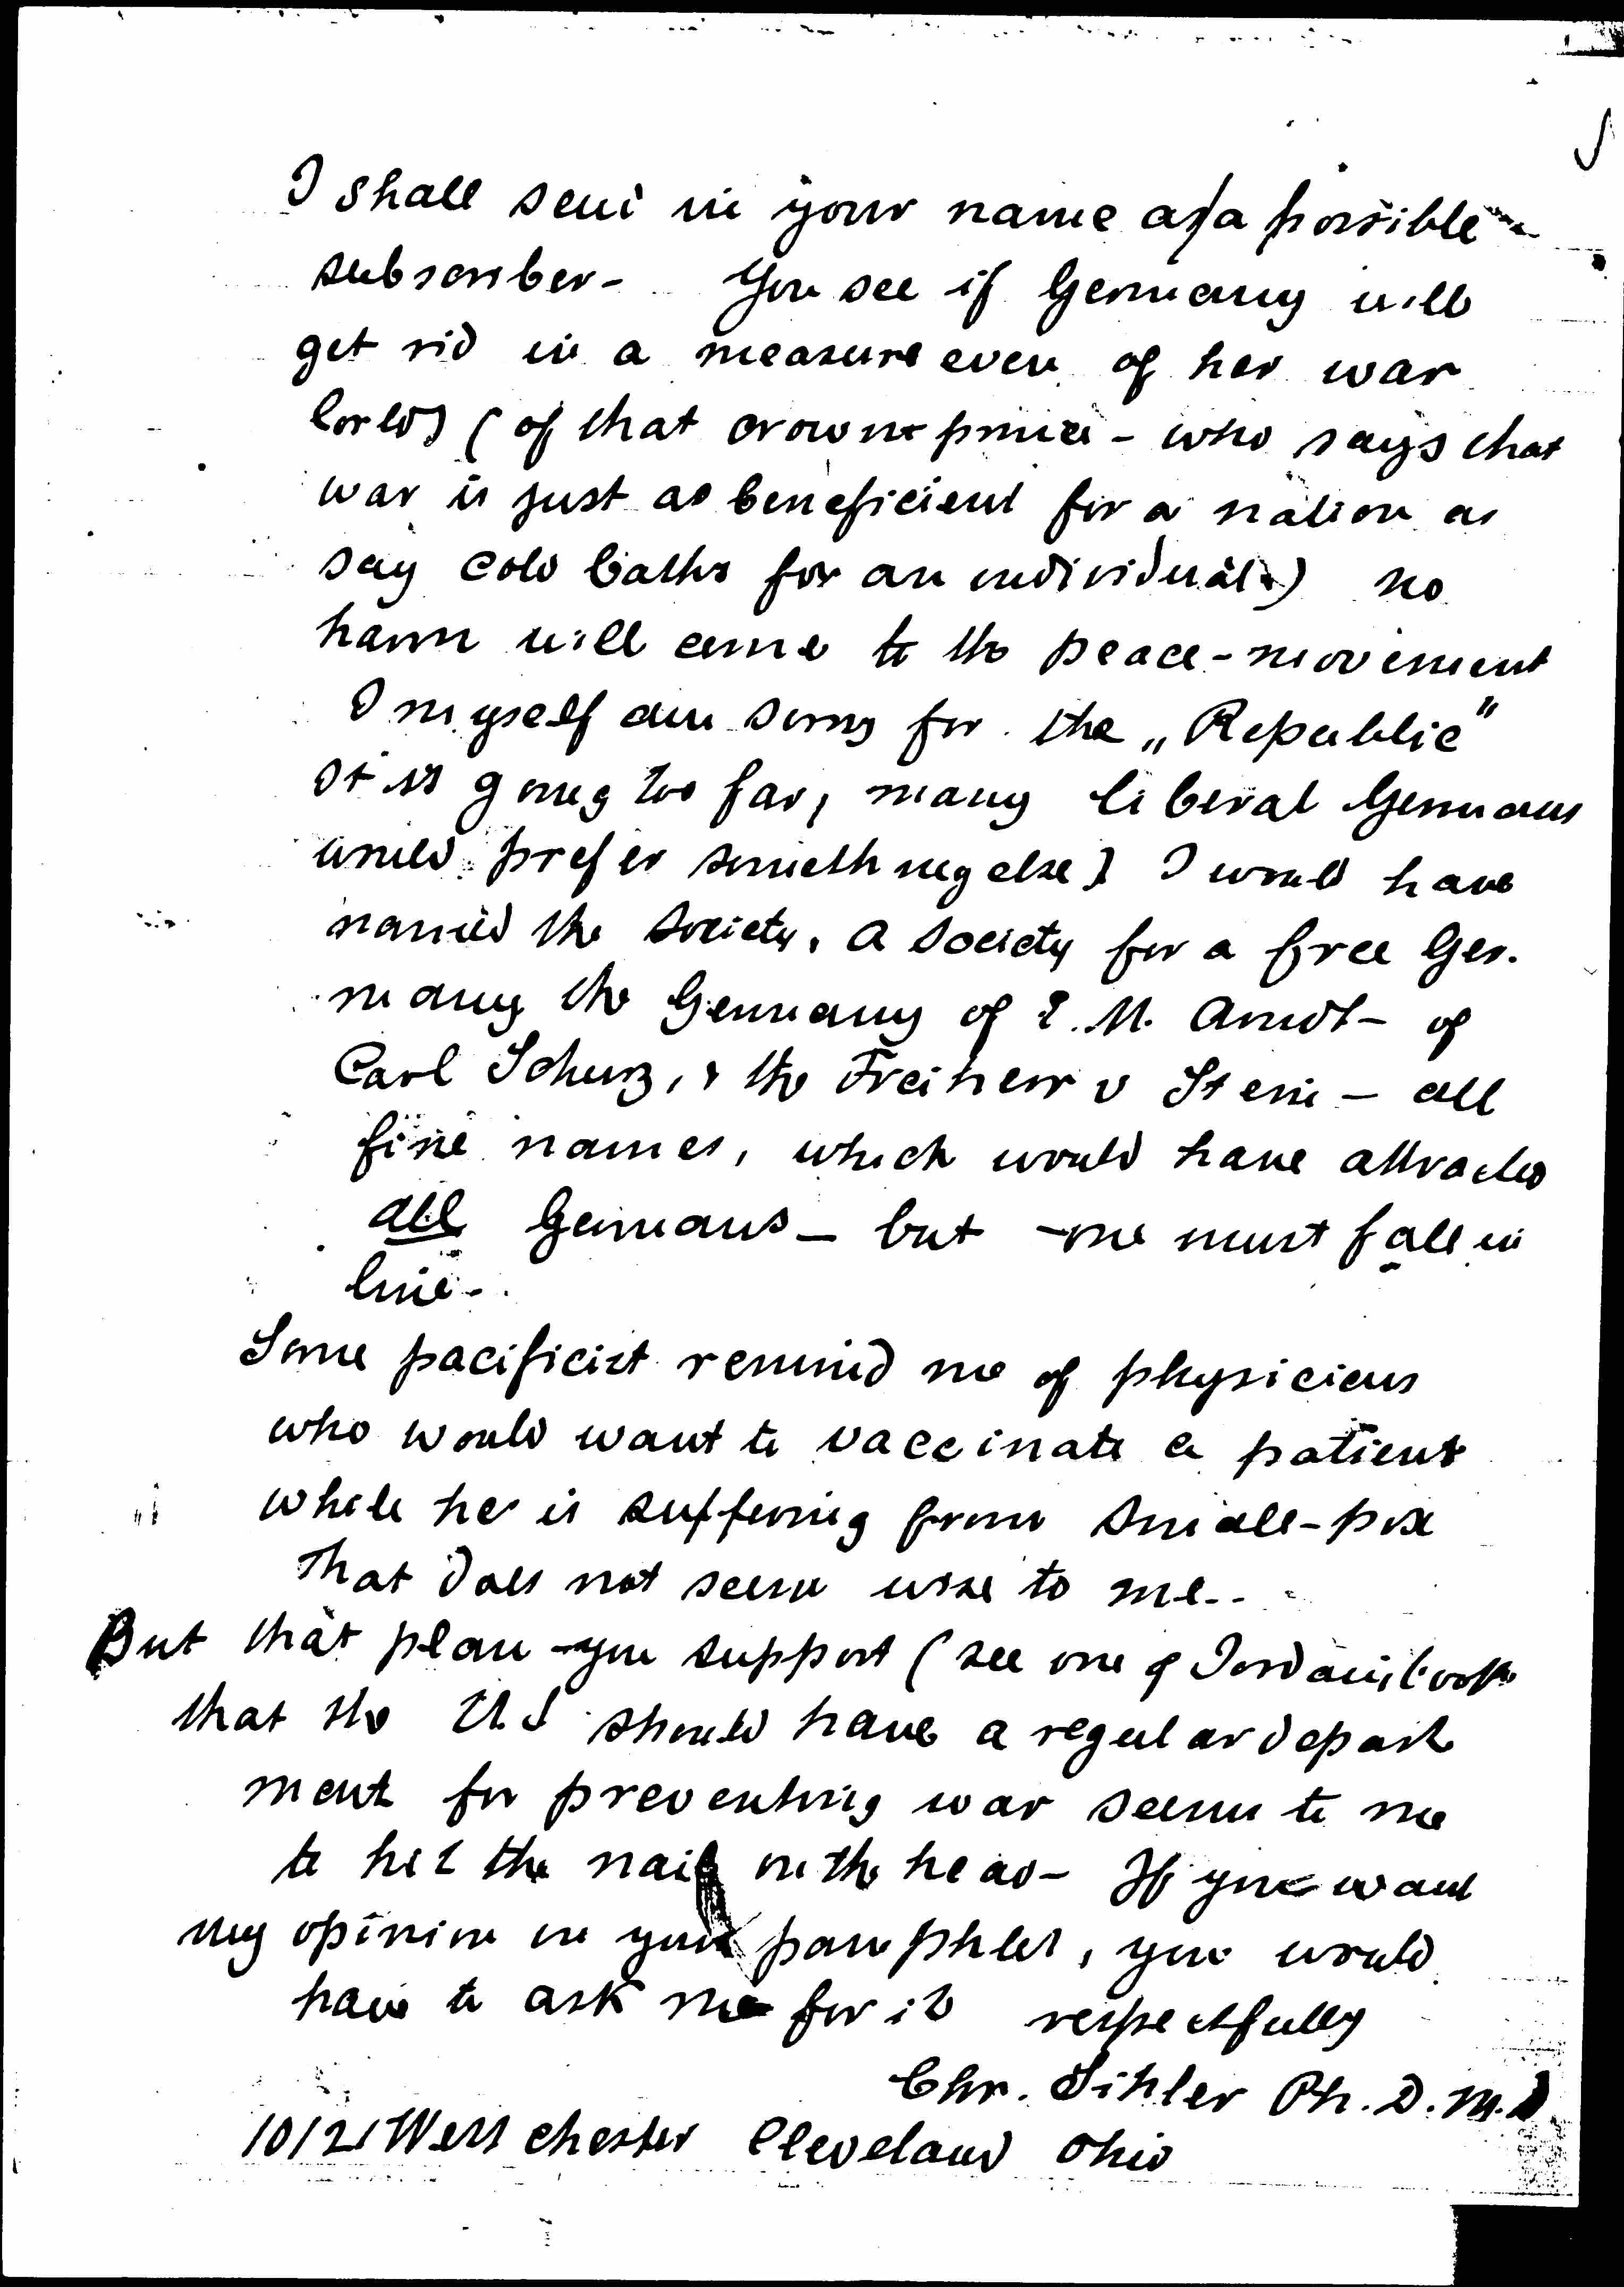 I shall send in your name as a possible
subscriber- You see if Germany will
get rid in a measure even of her war
lords (of that crown prince - who says that
war is just as beneficient for a nation as
say cold baths for an individual.) no
harm will come to the peace-movement
I myself am sorry for the „Republic"
It is going too far, many liberal Germans
would prefer something else) I would have
named the society, a society for a free Ger-
many the Germany of E. M. Arndt - of
Carl Schurz, & the Freiherr v Stein - all
fine names, which would have attracted
all Germans - but - one must fall in
line -
Some pacificist remind me of physicians
who would want to vaccinate a patient
while he is suffering from small-pox
That does not seem wise to me..
But that plan - you support (see one of Jordans books
that the U.S should have a regular depart
ment for preventing war seems to me
to hit the nail on the head - If you want
my opinion on your pamphlet, you would
have to ask me for it respectfully
Chr. Sihler Ph. D. M.D
10121 West chester Cleveland Ohio